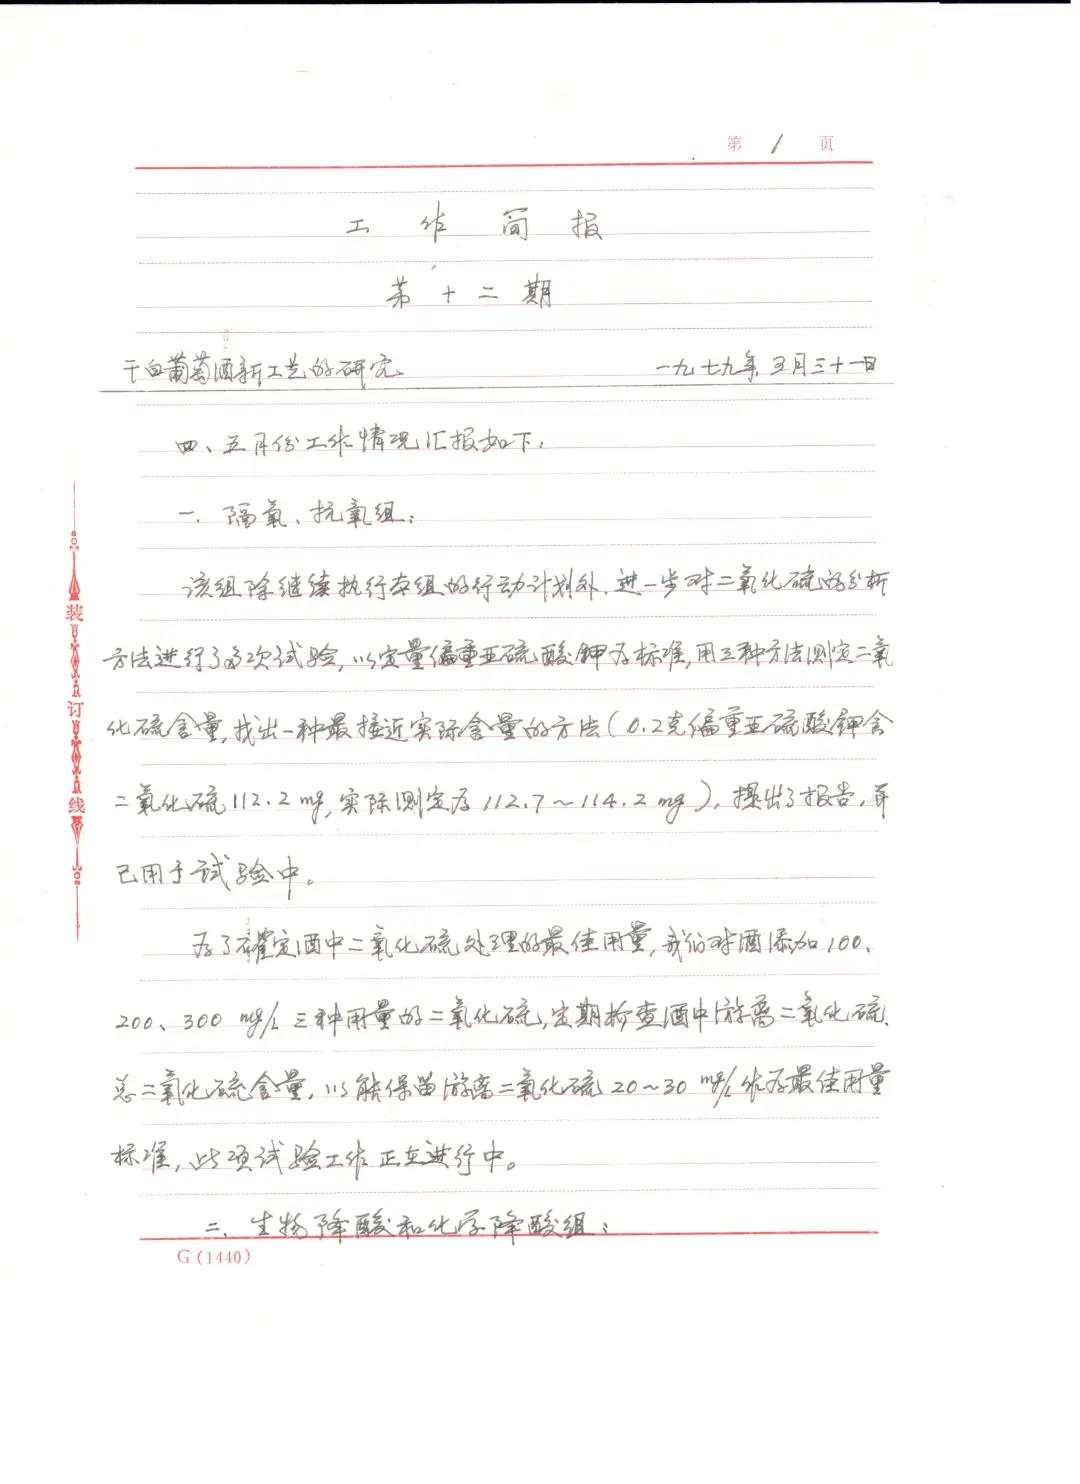 第 1 页
工作简报
第十二期
干白葡萄酒新工艺的研究 一九七九年五月三十一日
四、五月份工作情况汇报如下：
一、隔氧、抗氧组：
该组除继续执行本组的行动计划外，进一步对二氧化硫的分析
方法进行了多次试验，以定量偏重亚硫酸钾为标准，用三种方法测定二氧
化硫含量，找出一种最接近实际含量的方法（0.2克偏重亚硫酸钾含
二氧化硫112.2mg，实际测定为112.7～114.2mg），提出了报告，并
已用于试验中。
为了确定酒中二氧化硫处理的最佳用量，我们对酒添加100、
200、300 mg/L三种用量的二氧化硫，定期检查酒中游离二氧化硫、
总二氧化硫含量，以能保留游离二氧化硫20～30 mg/L作为最佳用量
标准，此项试验工作正在进行中。
二、生物降酸和化学降酸组：
G(1440)
装订线